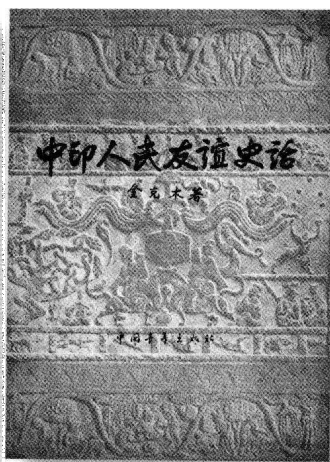 中印人民友谊史话
金克木著
中国青年出版社